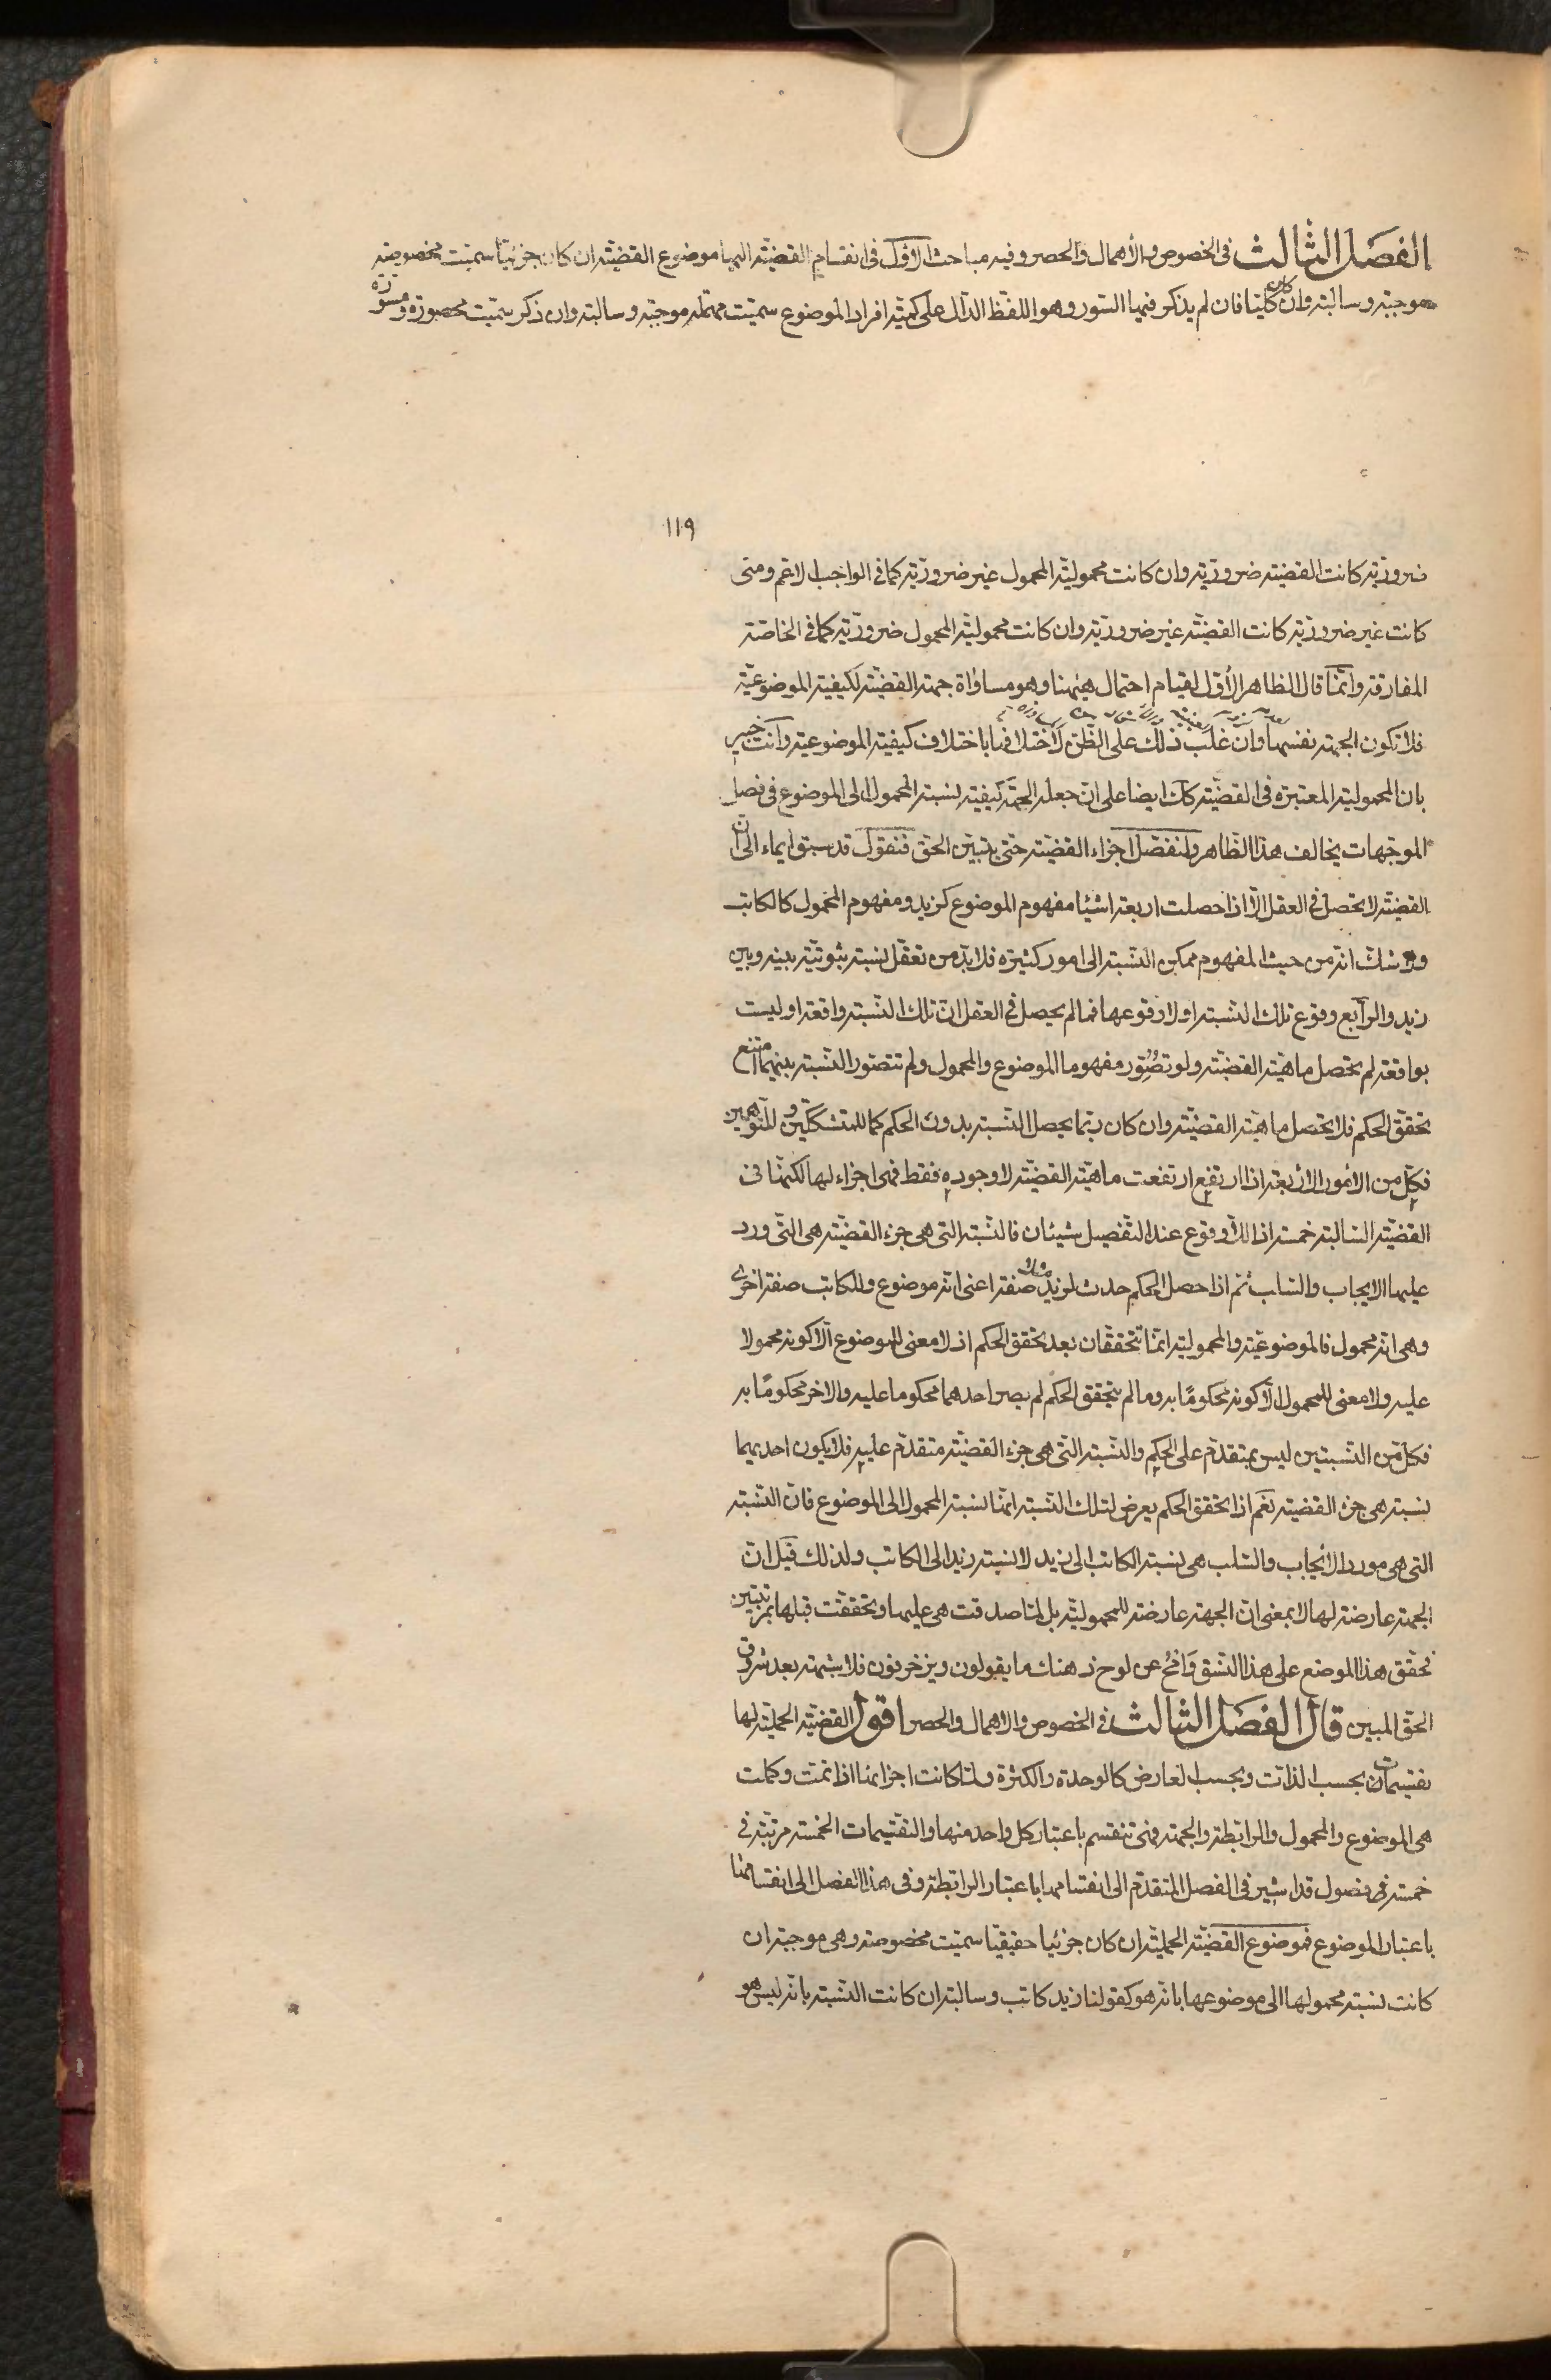 الفصل الثالث في الخصوص والأهمال والحصر وفيه مباحث الاول في انقسام القضية اليها موضوع القضية ان كان جزئيا سميت مخصوصة
موجبة وسالبة وان كان كليا فان لم يذكر فيها السور وهو اللفظ الدال على كمية افراد الموضوع سميت مهملة موجبة وسالبة وان ذكر سميت محصورة ومسورة
١١٩
ضرورية كانت القضية ضرورية وان كانت محمولية المحمول غير ضرورية كما في الواجب الاعم ومتى
كانت غير ضرورية كانت القضية غير ضرورية وان كانت محمولية المحمول ضرورية كما في الخاصة
المفارقة وانما قال الظاهر الأول لقيام احتمال هيهنا وهو مساواة جهة القضية لكيفية الموضوعية
فلا تكون الجهة نفسها وان غلب ذلك على الظن لاختلافها باختلاف كيفية الموضوعية وانت خبير
بان المحمولية المعتبرة في القضية كك ايضا على ان جعله الجهة كيفية لنسبة المحمول الى الموضوع في فصل
الموجهات يخالف هذا الظاهر ولنفصل اجزاء القضية حتى يتبين الحق فنقول قد سبق ايماء الى ان
القضية لا تحصل في العقل الا اذا حصلت اربعة اشيا مفهوم الموضوع كزيد ومفهوم المحمول كالكاتب
ولا شك انه من حيث المفهوم ممكن النسبة الى امور كثيرة فلا بد من تعقل نسبة ثبوتية بينه وبين
زيد والرابع وقوع تلك النسبة اولا وقوعها فما لم يحصل في العقل ان تلك النسبة واقعة او ليست
بواقعة لم تحصل ماهية القضية ولو تصور مفهوما الموضوع والمحمول ولم تتصور النسبة بينهما امتنع
تحقق الحكم فلا تحصل ماهية القضية وان كان ربما يحصل النسبة بدون الحكم كما للمتشككين والمتوهمين
فكل من الامور الاربعة اذا ارتفع ارتفعت ماهية القضية لا وجوده فقط فهي اجزاء لها لكنها في
القضية السالبة خمسة اذ اللاوقوع عند التفصيل شيئان فالنسبة التي هي جزء القضية هي التي ورد
عليها الايجاب والسلب ثم اذا حصل الحكم حدث لزيد مثلا صفة اعني انه موضوع وللكاتب صفة اخرى
وهي انه محمول فالموضوعية والمحمولية انما تتحققان بعد تحقق الحكم اذ لا معنى للموضوع الا كونه محمولا
عليه ولا معنى للمحمول الا كونه محكوما به وما لم يتحقق الحكم لم يصر احدهما محكوما عليه والاخر محكوما به
فكل من النسبتين ليس بمتقدم على الحكم والنسبة التي هي جزء القضية متقدم عليه فلا يكون احديهما
نسبة هي جزء القضية نعم اذا تحقق الحكم يعرض لتلك النسبة انها نسبة المحمول الى الموضوع فان النسبة
التي هي مورد الايجاب والسلب هي نسبة الكاتب الى زيد لا نسبة زيد الى الكاتب ولذلك قيل ان
الجهة عارضة لها لا بمعنى ان الجهة عارضة للمحمولية بل لما صدقت هي عليها وتحققت قبلها بمرتبتين
تحقق هذا الموضع على هذا النسق وامح عن لوح ذهنك ما يقولون ويزخرفون فلا شبهة بعد شروق
الحق المبين قال الفصل الثالث في الخصوص والاهمال والحصر اقول القضية الحملية لها
تقسيمات بحسب الذات وبحسب العارض كالوحدة والكثرة ولما كانت اجزائها اذا تمت وكملت
هي الموضوع والمحمول والرابطة والجهة فهي تنقسم باعتبار كل واحد منها والتقسيمات الخمسة مرتبة في
خمسة فصول قد اشير في الفصل المتقدم الى انقسامها باعتبار الرابطة وفي هذا الفصل الى انقسامها
باعتبار الموضوع فموضوع القضية الحملية ان كان جزئيا حقيقيا سميت مخصوصة وهي موجبة ان
كانت نسبة محمولها الى موضوعها بانه هو كقولنا زيد كاتب وسالبة ان كانت النسبة بانه ليس هو